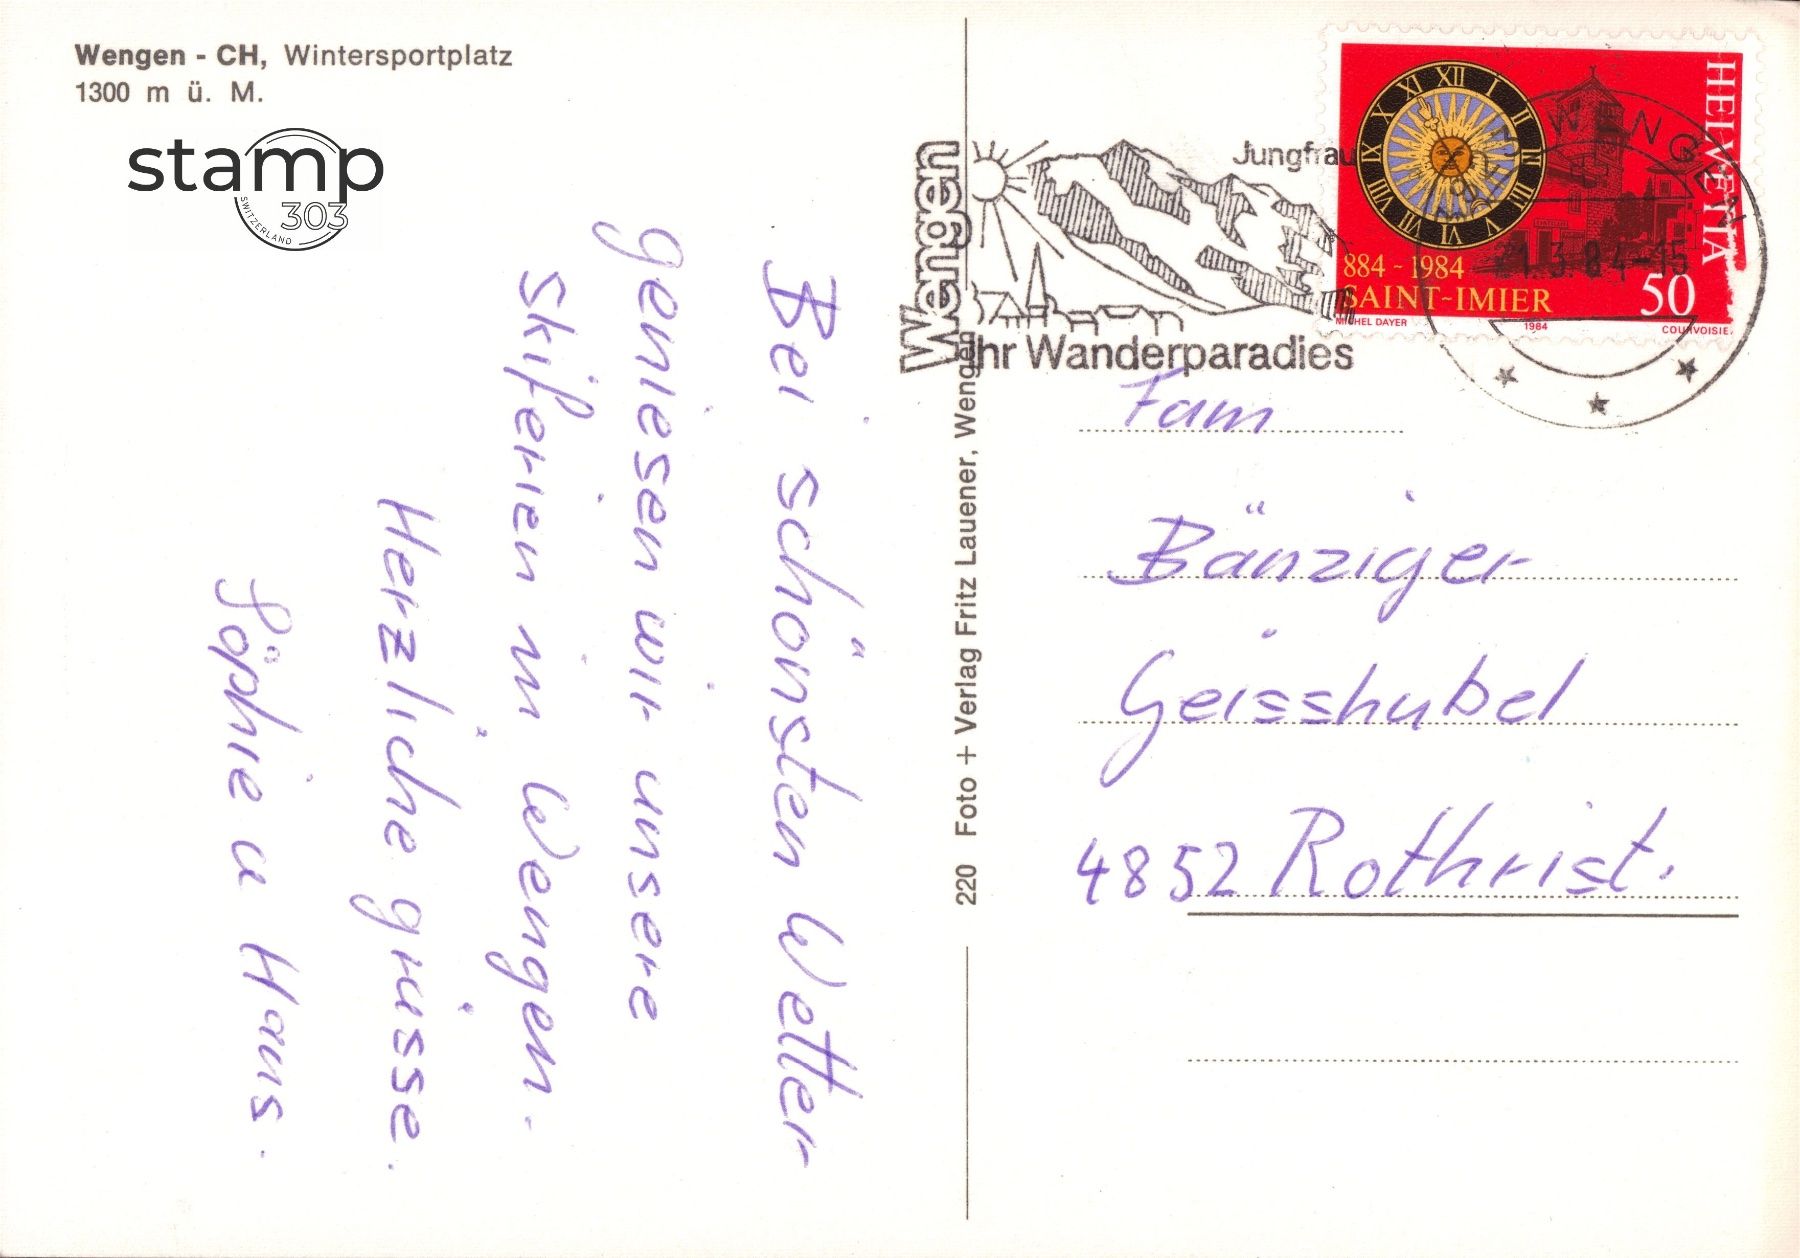 Wengen - CH, Wintersportplatz
1300 m ü. M.
stamp
303
SWITZERLAND
Bei schönsten Wetter
geniesen wir unsere
skiferien in Wengen.
Herzliche grüsse.
Söphie u Hans.
220 Foto + Verlag Fritz Lauener, Wengen
Wengen
Jungfrau
Ihr Wanderparadies
3823 WENGEN
21.3.84-15
HELVETIA
XII I II III IIII V VI VII VIII IX X XI
884 - 1984
SAINT-IMIER
50
MICHEL DAYER
1984
COURVOISIER
Fam
Bänziger
Geisshubel
4852 Rothrist.